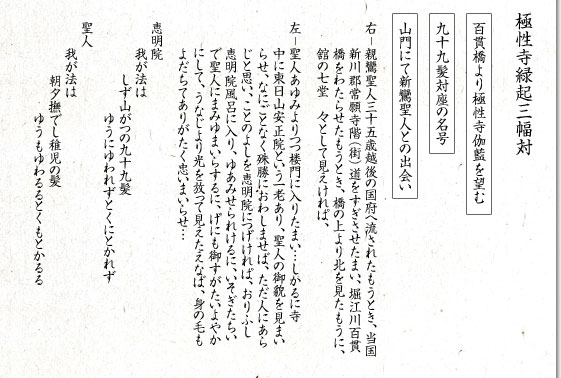 極性寺縁起三幅対
百貫橋より極性寺伽藍を望む
九十九髪対座の名号
山門にて新鸞聖人との出会い
右ー親鸞聖人三十五歳越後の国府へ流されたもうとき、当国
新川郡常願寺階（街）道をすぎさせたまい、堀江川百貫
橋をわたらせたもうとき、橋の上より北を見たもうに、
館の七堂　々として見えければ、
左ー聖人あゆみよりつつ楼門に入りたまい…しかるに寺
中に東日山安正院という一老あり、聖人の御貌を見まい
らせ、なにごとなく殊勝におわしませば、ただ人にあら
じと思い、ことのよしを恵明院につげければ、おりふし
恵明院風呂に入り、ゆあみせられけるに、いそぎたちい
で聖人にまみゆまいらするに、げにも御すがたいよやか
にして、うなじより光を放つて見えたえなば、身の毛も
よだちてありがたく思いまいらせ…
恵明院
我が法は
しず山がつの九十九髪
ゆうにゆわれずとくにとかれず
聖人
我が法は
朝夕撫でし稚児の髪
ゆうもゆわるるとくもとかるる